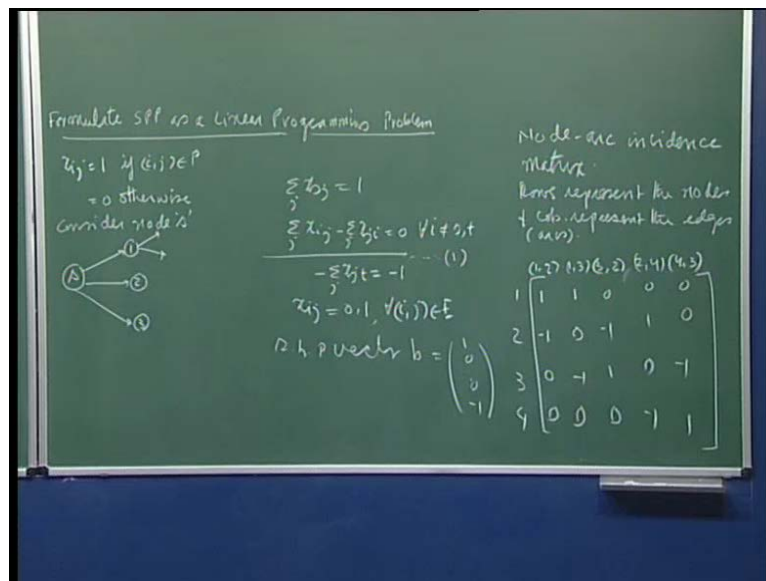 Formulate SPP as a Linear Programming Problem
xij = 1 if (i,j) ∈ P
= 0 otherwise
Consider node 's'
s
1
2
3
∑j xsj = 1
∑j xij - ∑j xji = 0 ∀ i ≠ s,t
---- (1)
-∑j xjt = -1
xij = 0,1, ∀(i,j) ∈ E
r.h.p vector b = (1 0 0 -1)
Node-arc incidence
matrix.
Rows represent the nodes
& cols. represent the edges
(arcs).
(1,2) (1,3) (3,2) (2,4) (4,3)
1 1 1 0 0 0
2 -1 0 -1 1 0
3 0 -1 1 0 -1
4 0 0 0 -1 1